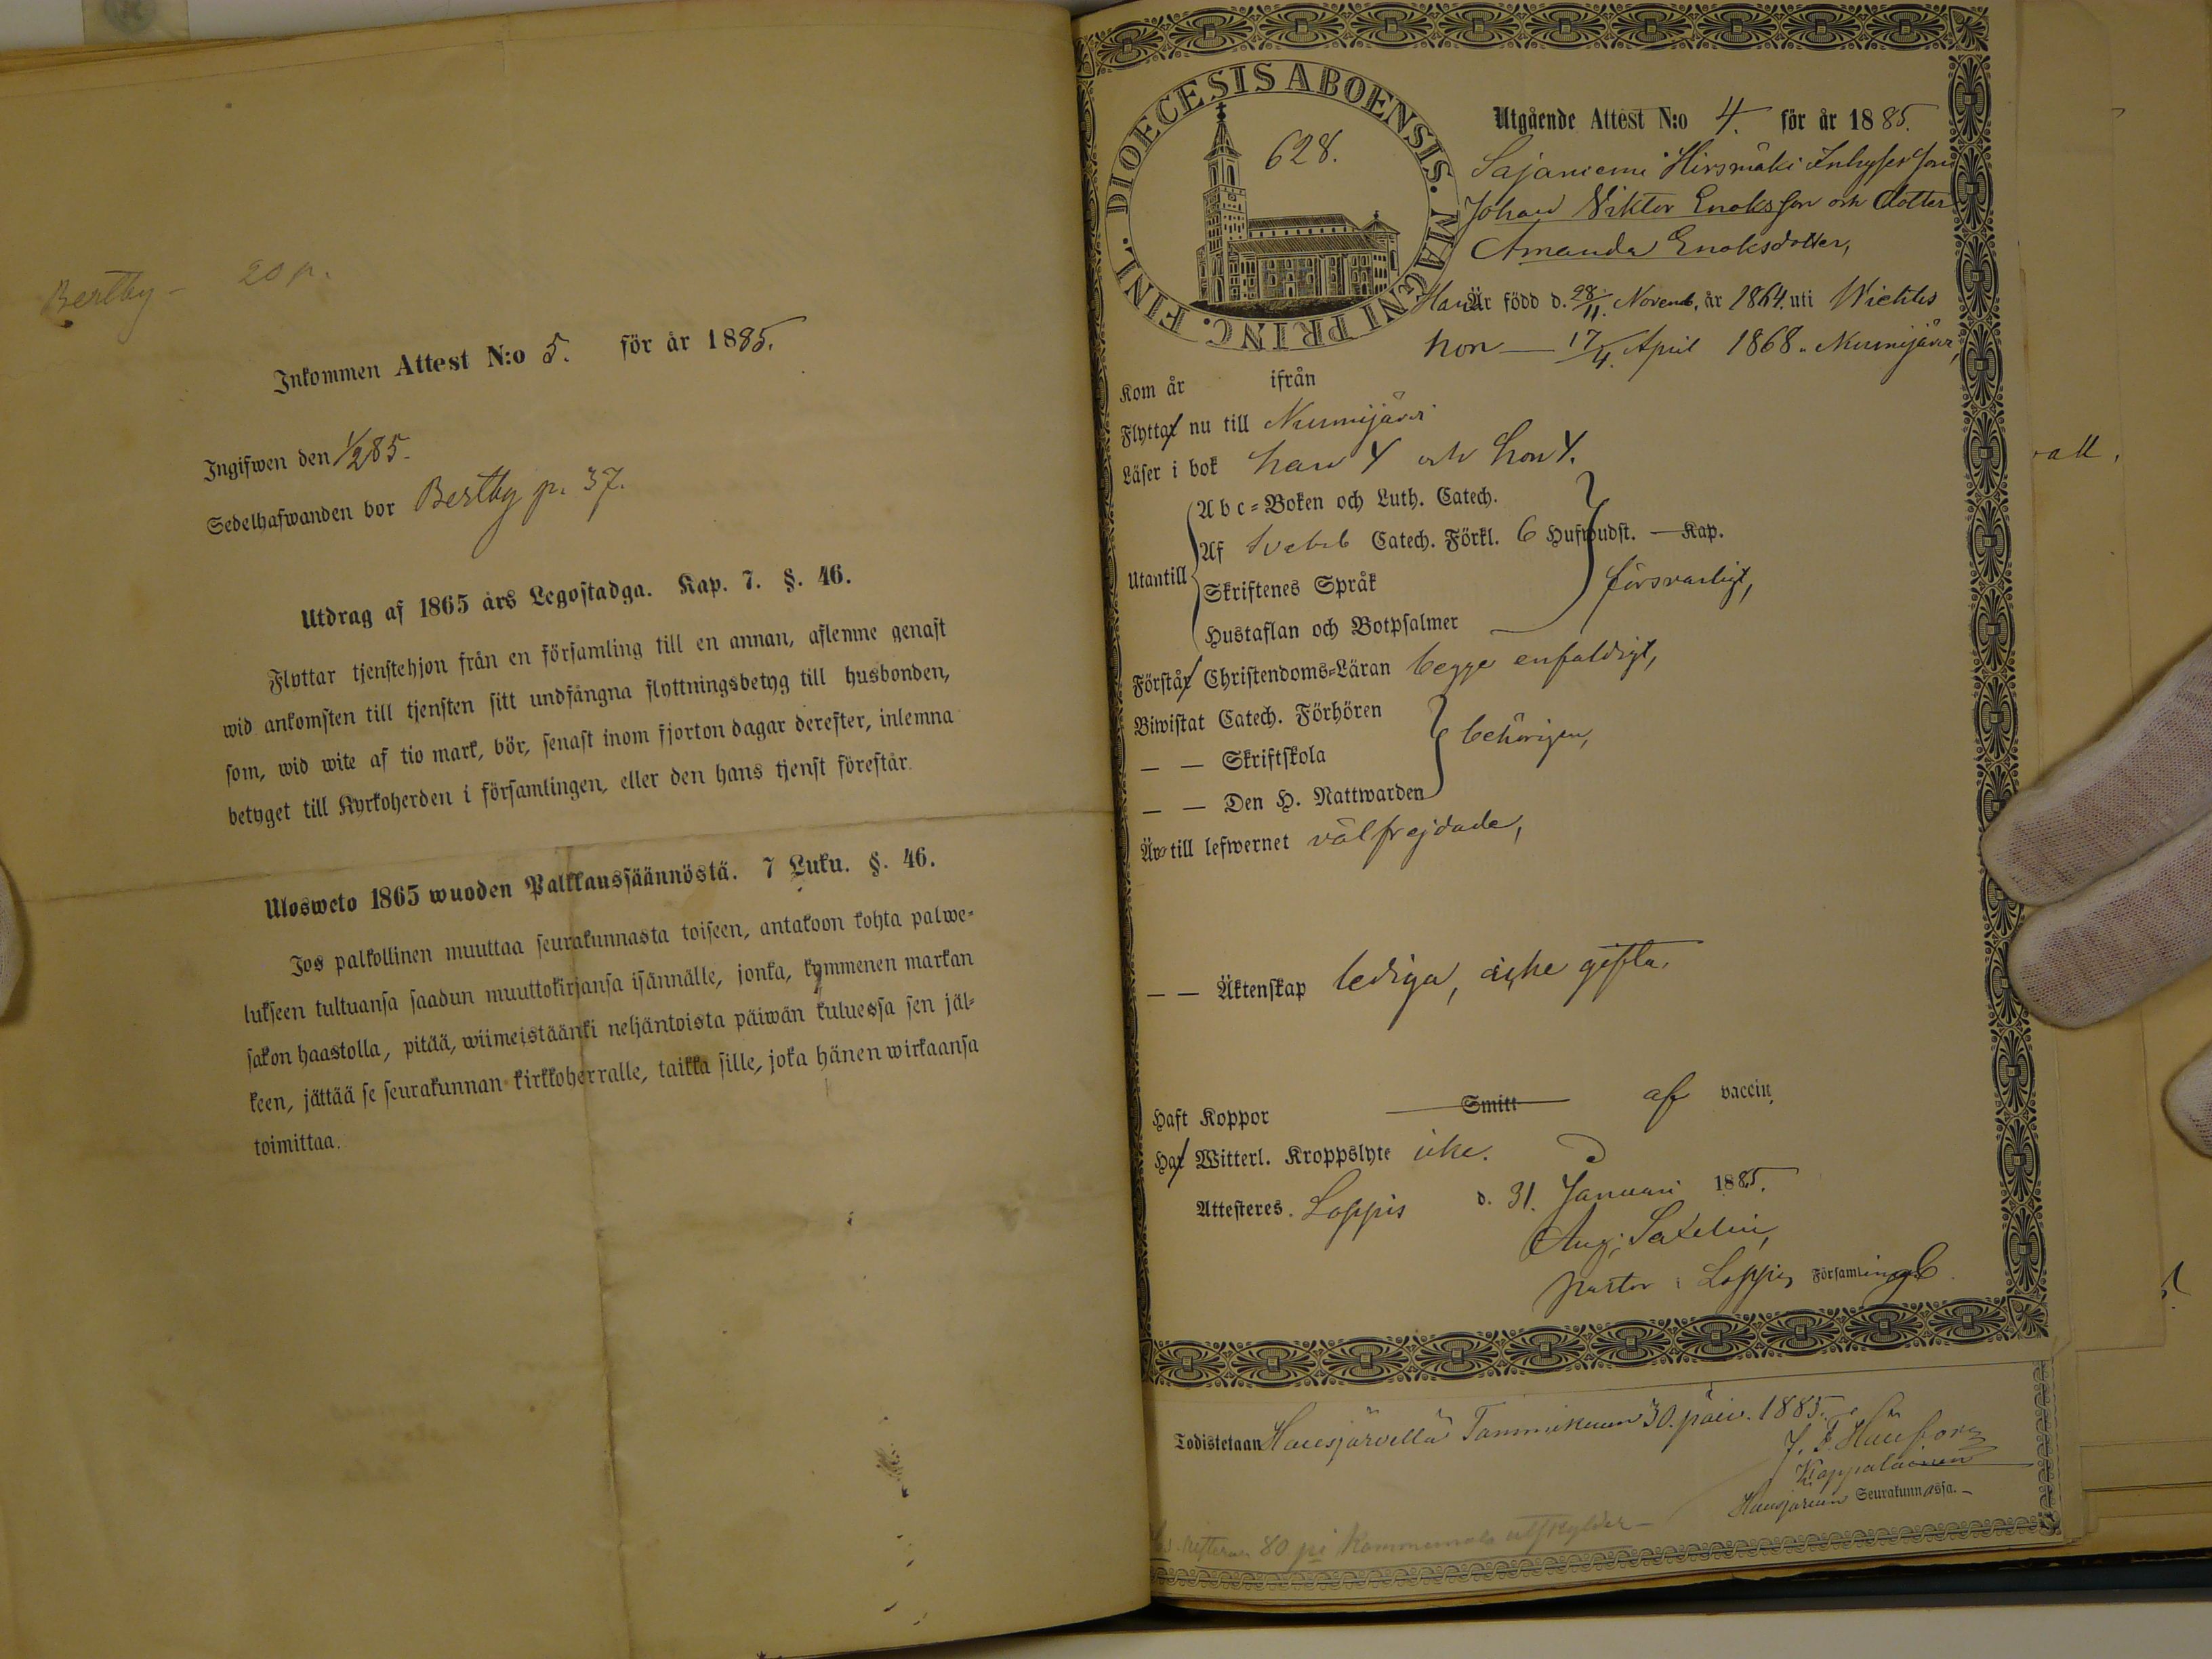 Bertby – 20 p.
Inkommen Attest N:o 5. för år 1885.
Ingifwen den 1/2 85.
Sedelhafwanden bor Bertby p. 37.
Utdrag af 1865 års Legostadga. Kap. 7. §. 46.
Flyttar tjenstehjon från en församling till en annan, aflemne genast
wid ankomsten till tjensten sitt undfångna flyttningsbetyg till husbonden,
som, wid wite af tio mark, bör, senast inom fjorton dagar derefter, inlemna
betyget till Kyrkoherden i församlingen, eller den hans tjenst förestår.
Ulosweto 1865 wuoden Palkkaussäännöstä. 7 Luku. §. 46.
Jos palkollinen muuttaa seurakunnasta toiseen, antakoon kohta palwe-
lukseen tultuansa saadun muuttokirjansa isännälle, jonka, kymmenen markan
sakon haastolla, pitää, wiimeistäänki neljäntoista päiwän kuluessa sen jäl-
keen, jättää se seurakunnan kirkkoherralle, taikka sille, joka hänen wirkaansa
toimittaa.
DIOECESIS ABOENSIS. MAGNI PRINC. FINL.
628.
Utgående Attest N:o 4. för år 1885.
Sajaniemi Hirsmäki Inhyses son
Johan Viktor Enoksson och dotter
Amanda Enoksdotter,
Han Är född d. 28/11. Novemb, år 1864. uti Wichtis
hon — 17/4. April 1868 " Nurmijärvi,
Kom år ifrån
Flyttar nu till Nurmijärvi
Läser i bok han 4 och hon 4.
Utantill
Abc-Boken och Luth. Catech.
Af Svebil Catech. Förkl. 6 Hufwudst. — Kap.
Skriftenes Språk försvarligt,
Hustaflan och Botpsalmer
Förstår Christendoms-Läran begge enfaldigt,
Biwistat Catech. Förhören
— — Skriftskola behörigen,
— — Den H. Nattwarden
Äro till lefwernet välfrejdade,
— — Äktenskap lediga, icke gifta.
Haft Koppor Smitt af vaccin.
Har Witterl. Kroppslyte icke.
Attesteres. Loppis d. 31. Januari 1885.
Aug. Saxelin,
pastor i Loppis Församling
Todistetaan Hausjärvellä Tammikuun 30. päiv. 1885.
Kappalainen
Hausjärven Seurakunnassa. –
80 pi Kommunala utskylder –